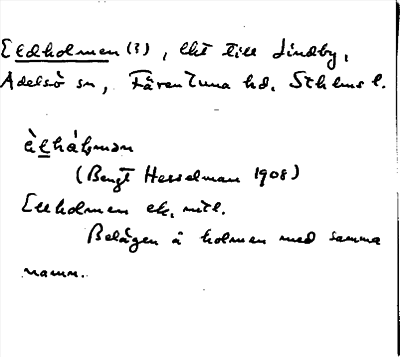 Eldholmen (?), lht till Lindby,
Adelsö sn, Färentuna hd, Sthlms l.
(Bengt Hesselman 1908)
Ellholmen ek.
Belägen å holmen med samma
namn.